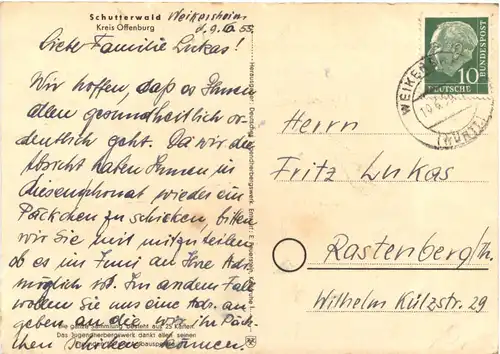 Schutterwald
Kreis Offenburg
Weikersheim
d. 9.6.55
Liebe Familie Lukas!
Wir hoffen, daß es Ihnen
allen gesundheitlich or-
dentlich geht. Da wir die
Absicht haben Ihnen in
diesem Monat wieder ein
Päckchen zu schicken, bitten
wir Sie mit mitzuteilen
ob es im Juni an Ihre Adr.
möglich ist. Im andern Fall
wollen Sie uns eine Adr. an-
geben an die wir ihr Päck-
chen schicken können.
Die ganze Sammlung besteht aus 25 Karten
Das Jugendherbergswerk dankt allen seinen
Herausgeber: Deutsches Jugendherbergswerk
10
DEUTSCHE
BUNDESPOST
WEIKERSHEIM
(WÜRTT)
Herrn
Fritz Lukas
Rastenberg/Th.
Wilhelm Külzstr. 29